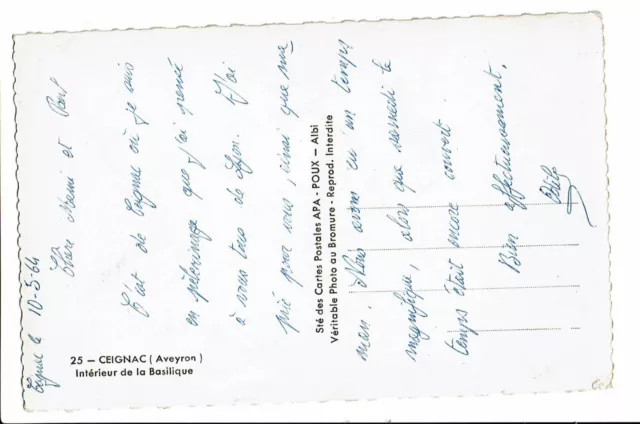 Ceignac le 10-5-64
Chers Noémi et Paul
C'est de Ceignac où je suis
en pèlerinage que j'ai pensé
à vous tous de Lyon. J'ai
prié pour vous, ainsi que ma-
man. Nous avons eu un temps
magnifique, alors que samedi le
temps était encore couvert.
Bien affectueusement.
Odile
25 — CEIGNAC ( Aveyron )
Intérieur de la Basilique
Sté des Cartes Postales APA - POUX — Albi
Véritable Photo au Bromure - Reprod. Interdite